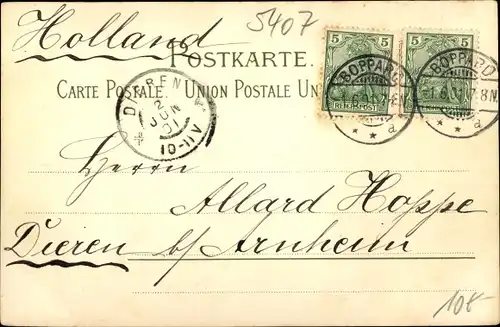 5407
Holland
POSTKARTE.
CARTE POSTALE. UNION POSTALE UN
5 5
REICHSPOST
5 5
BOPPARD
1.6.01.7-8N.
* * a
BOPPARD
1.6.01.7-8N.
* * a
DIEREN
2
JUN
01
10-11V
Herrn
Allard Hoppe
Dieren b/Arnheim
108-